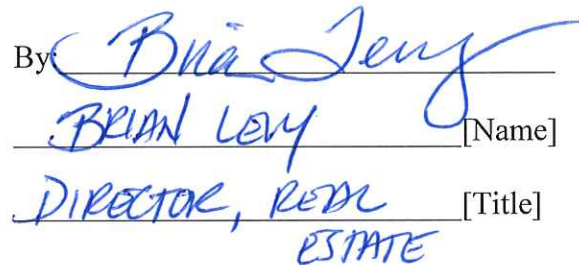 By: Brian Levy
BRIAN LEVY [Name]
DIRECTOR, REAL [Title]
ESTATE